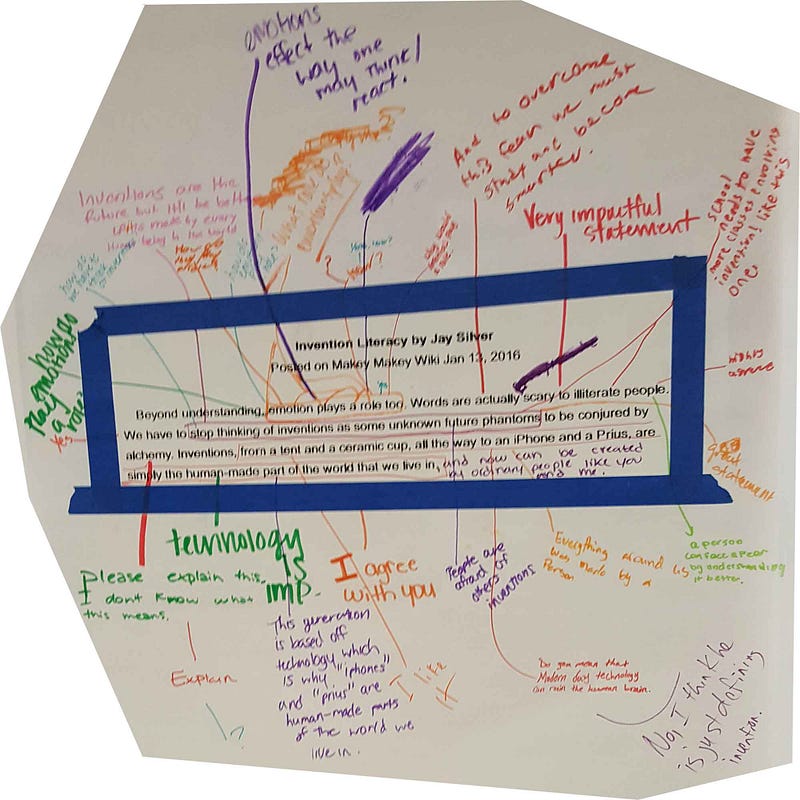 emotions
effect the
way one
may think/
react.
And to overcome
this fear we must
study and become
smarter.
Very impactful
statement
school
needs to have
more classes envolving
inventions like this
one.
Inventions are the
future but
made by every
human being in the world
how do
emotions
play
a
role
yes
how?
Invention Literacy by Jay Silver
Posted on Makey Makey Wiki Jan 13, 2016
Beyond understanding, emotion plays a role too. Words are actually scary to illiterate people.
We have to stop thinking of inventions as some unknown future phantoms to be conjured by
alchemy. Inventions, from a tent and a ceramic cup, all the way to an iPhone and a Prius, are
simply the human-made part of the world that we live in, and now can be created
by ordinary people like you
and me.
great
statement
technology
is
imp.
Please explain this.
I dont know what
this means.
Explain
!?
This generation
is based off
technology which
is why "iphones"
and "prius" are
human-made parts
of the world we
live in.
I agree
with you
I like
it
People are
afraid of
inventions
Everything around us
was made by a
Person
a person
can face a fear
by understanding
it better.
Do you mean that
Modern day technology
can ruin the human brain.
No, I think he
is just defining
invention.